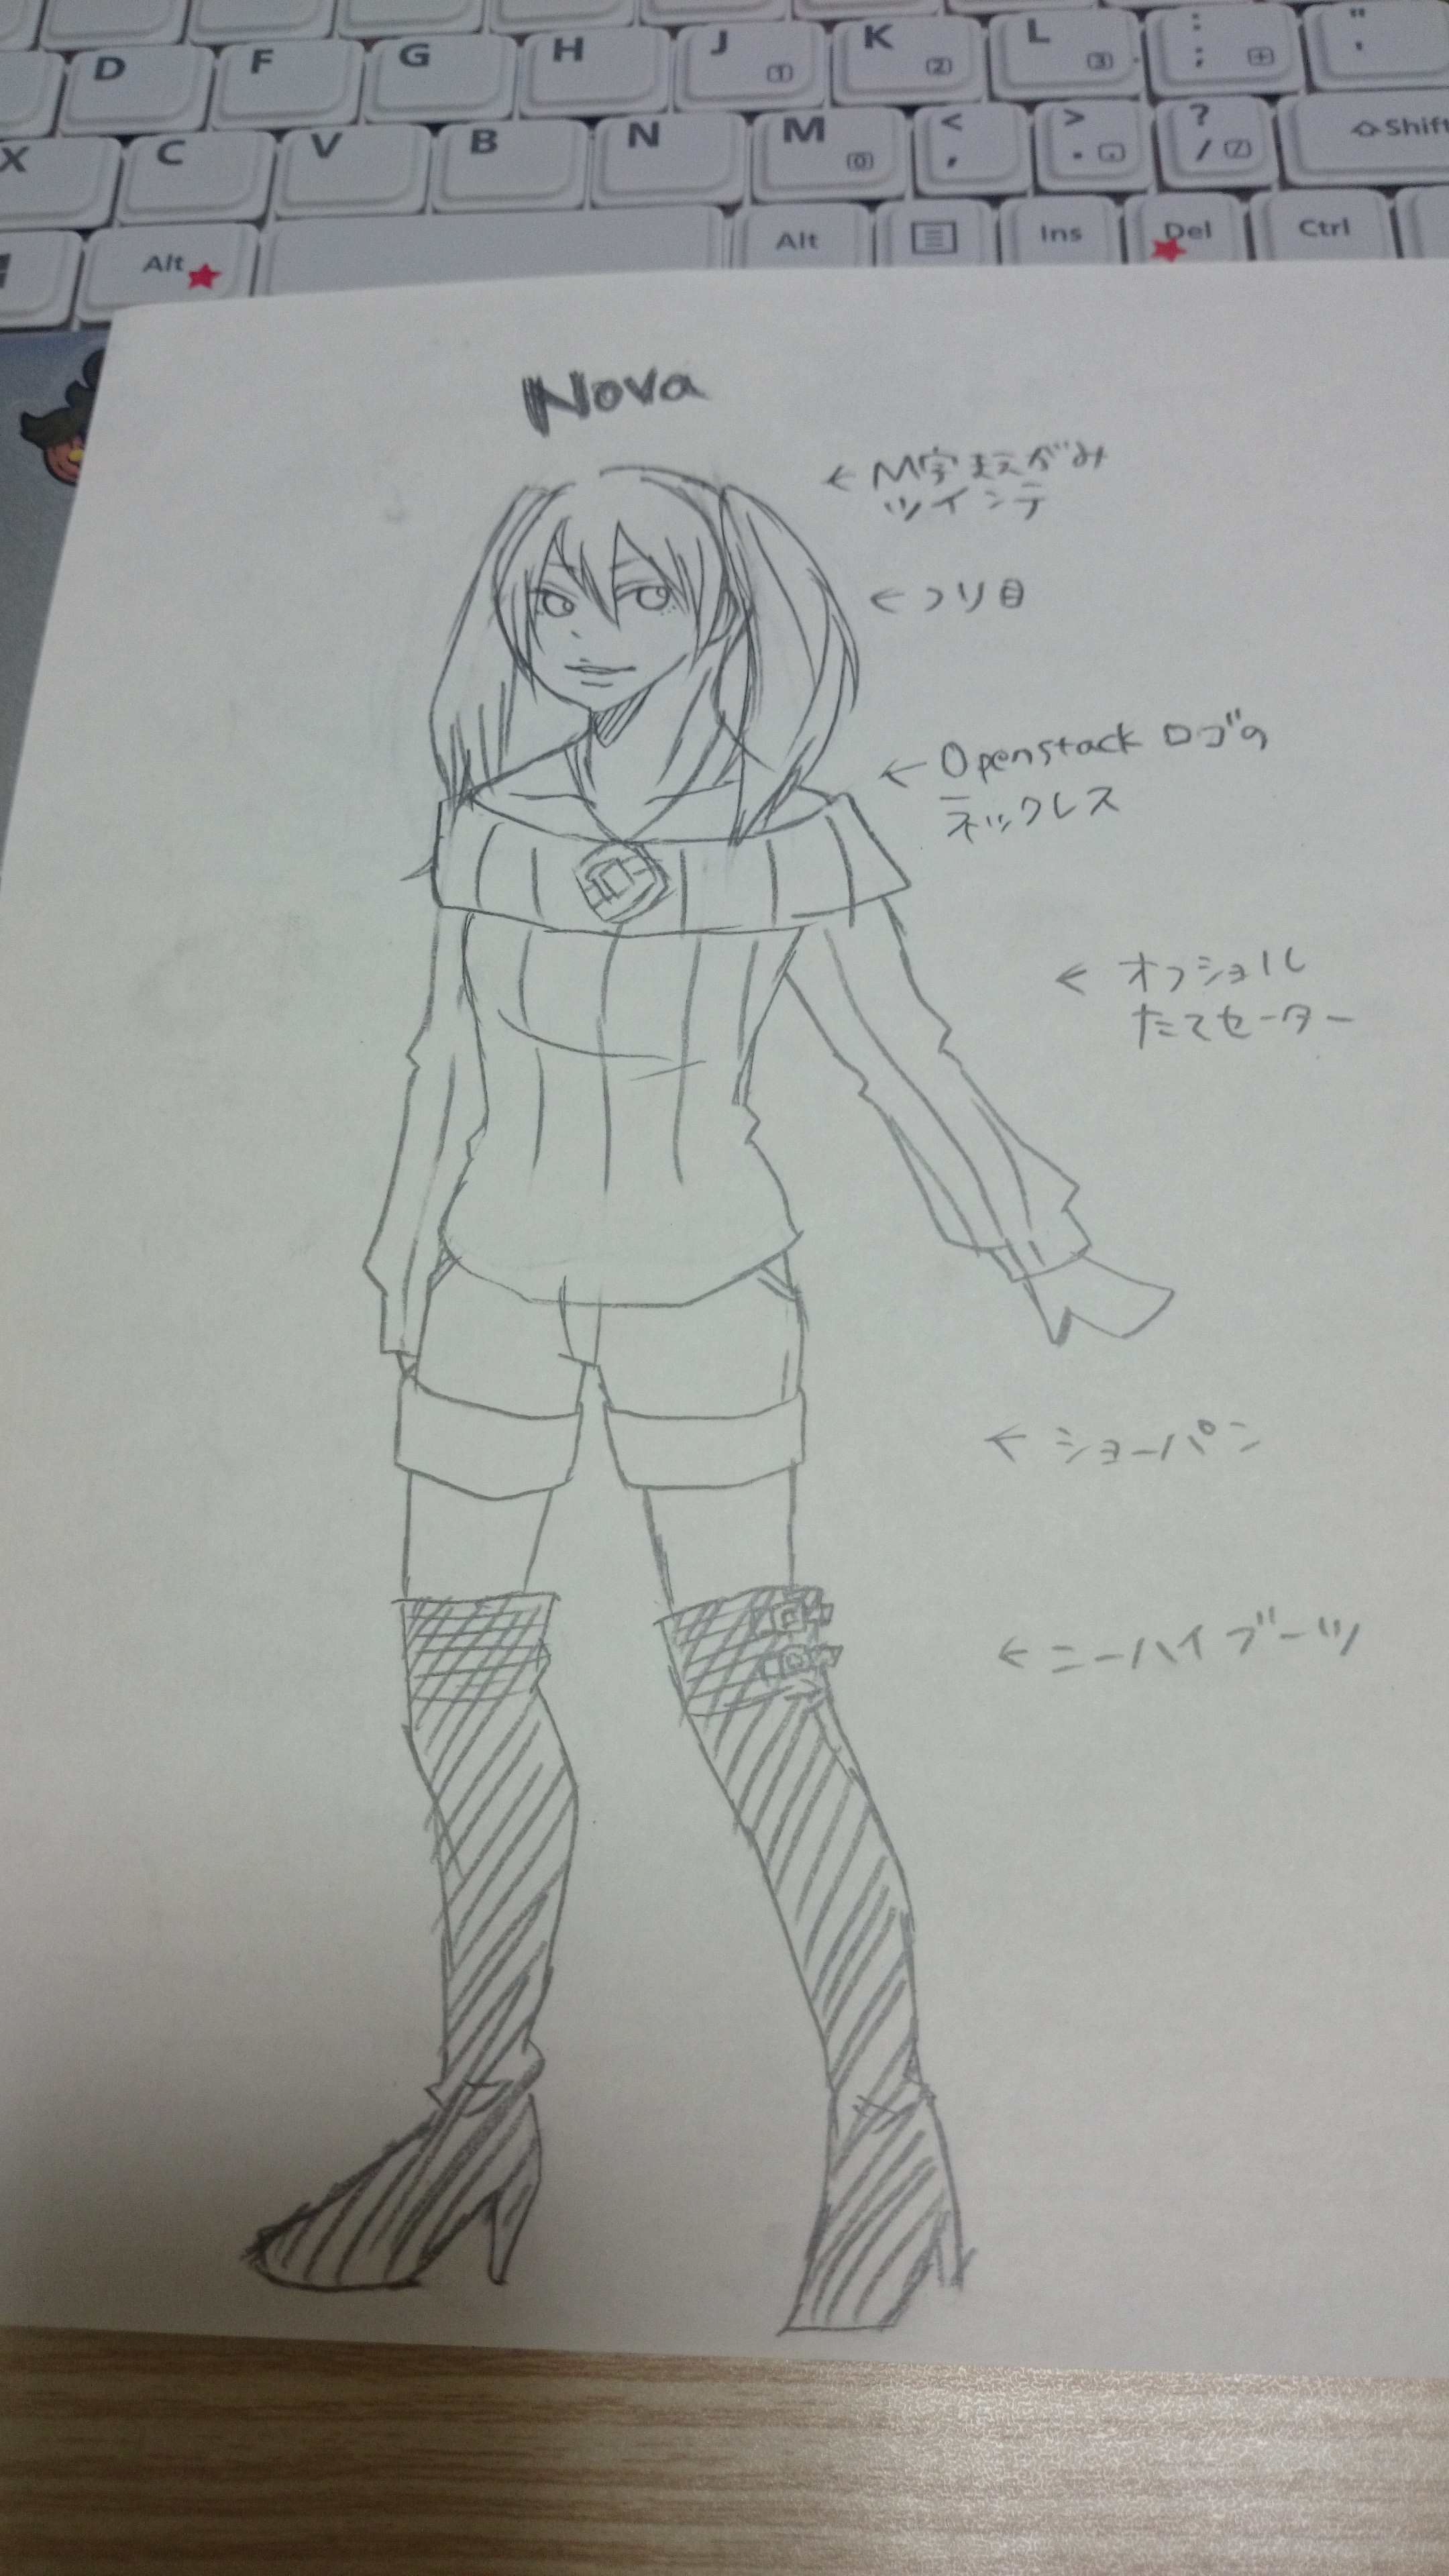 D F G H J 1 K 2 L 3 : ; + " '
X C V B N M 0 < , > . . ? / / Shift
Alt Alt Ins Del Ctrl
Nova
← M字まえがみ
ツインテ
← つり目
← Openstack ロゴの
ネックレス
← オフショル
たてセーター
← ショーパン
← ニーハイブーツ